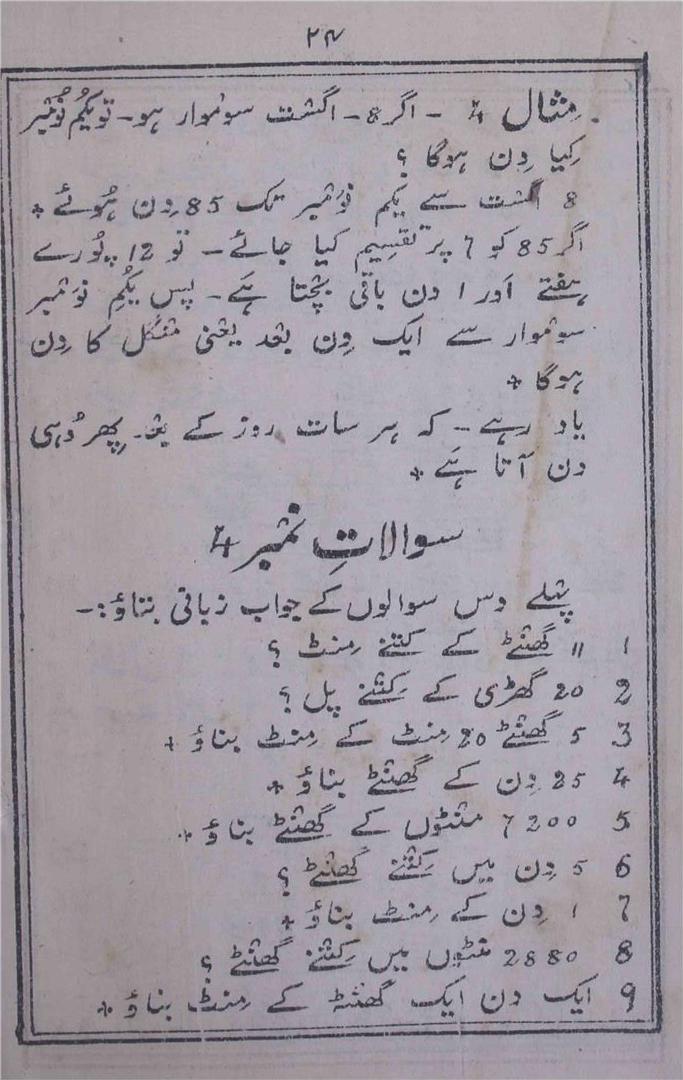 ۲۴
مثال 4 - اگر 8 - اگست سوموار ہو - تو یکم نومبر
کیا دِن ہوگا ؟
8 اگست سے یکم نومبر تک 85 دِن ہُوئے +
اگر 85 کو 7 پر تقسیم کیا جائے - تو 12 پُورے
ہفتے اَور 1 دن باقی بچتا ہَے - پس یکُم نومبر
سوموار سے ایک دِن بعد یعنی منگل کا دِن
ہوگا +
یاد رہے - کہ ہر سات روز کے بعد پِھر وُہی
دن آتا ہَے +
سوالاتِ نمبر 4
پہلے دس سوالوں کے جواب زبانی بتاؤ :-
1 11 گھنٹے کے کتنے مِنٹ ؟
2 20 گھڑی کے کِتنے پل ؟
3 5 گھنٹے 20 مِنٹ کے مِنٹ بناؤ +
4 25 دِن کے گھنٹے بناؤ +
5 7200 منٹوں کے گھنٹے بناؤ +
6 5 دِن میں کِتنے گھنٹے ؟
7 1 دِن کے مِنٹ بناؤ +
8 2880 منٹوں میں کِتنے گھنٹے ؟
9 ایک دن ایک گھنٹہ کے مِنٹ بناؤ +